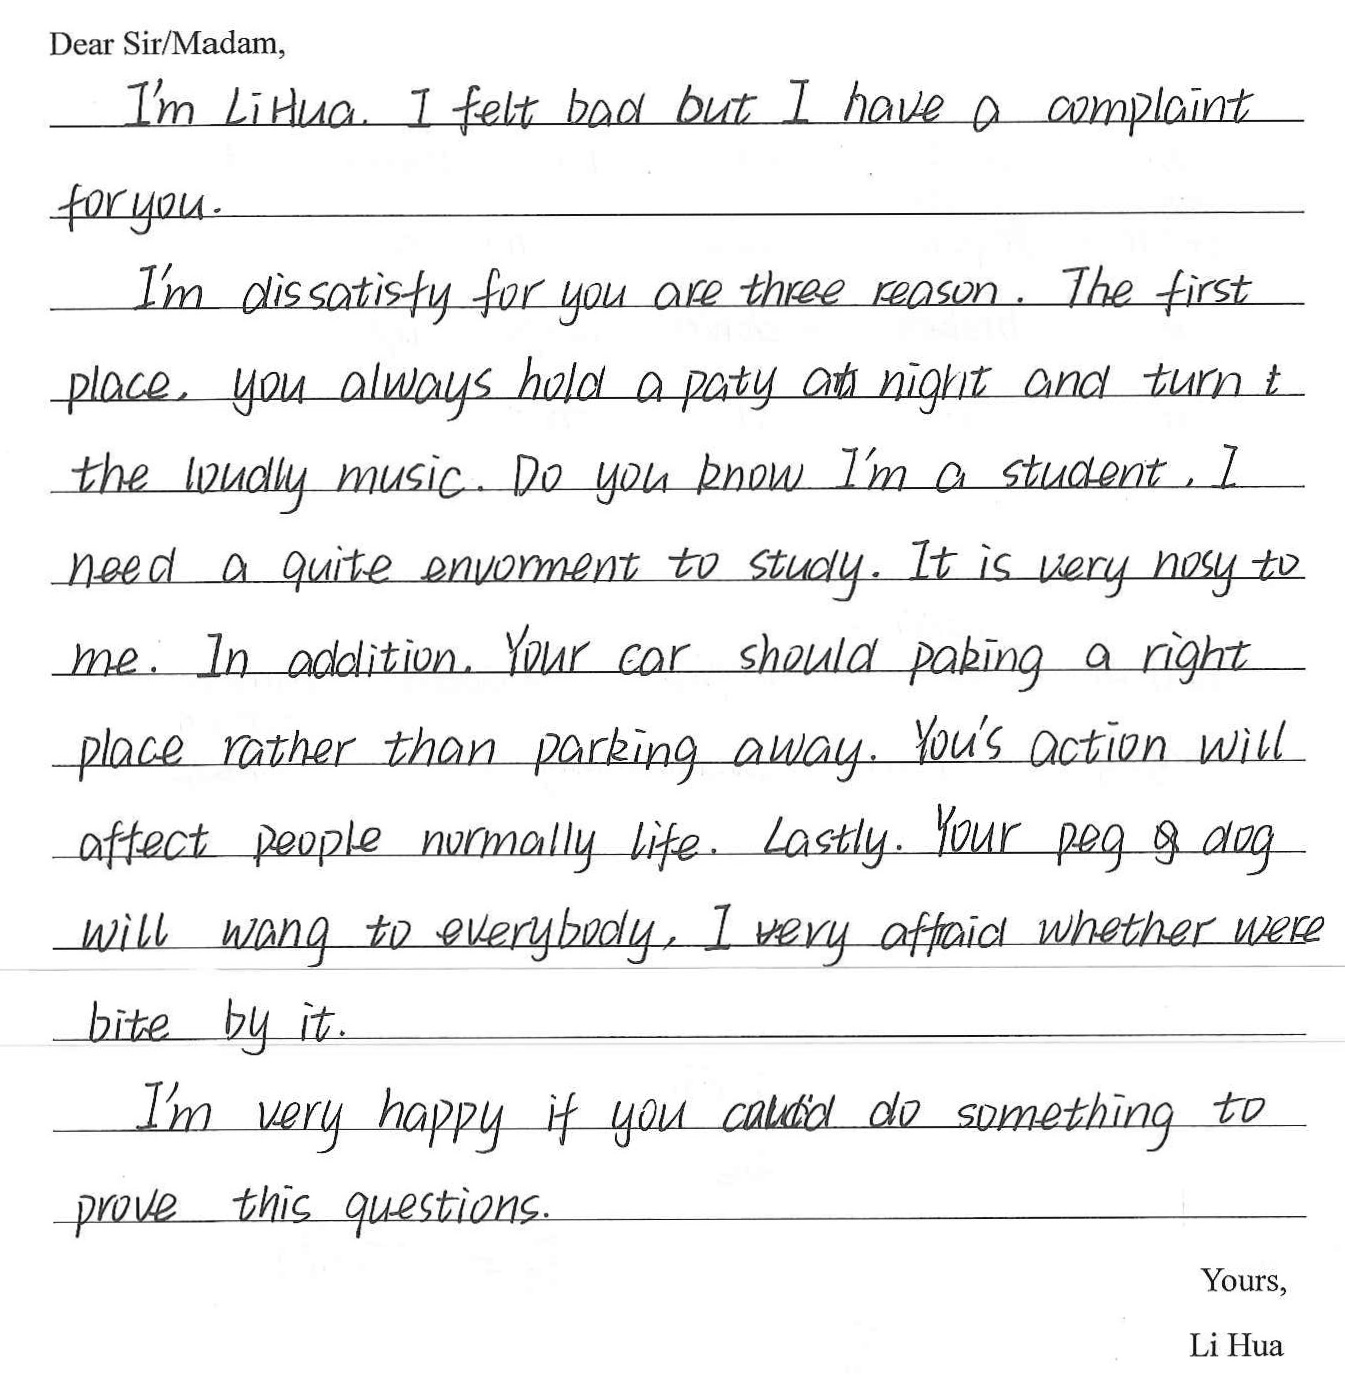 Dear Sir/Madam,
I'm Li Hua. I felt bad but I have a complaint
for you.
I'm dissatisfy for you are three reason. The first
place, you always hold a paty at night and turn t
the loudly music. Do you know I'm a student, I
need a quite envorment to study. It is very nosy to
me. In addition. Your car should paking a right
place rather than parking away. You's action will
affect people normally life. Lastly. Your peg dog
will wang to everybody, I very affraid whether were
bite by it.
I'm very happy if you do something to
prove this questions.
Yours,
Li Hua